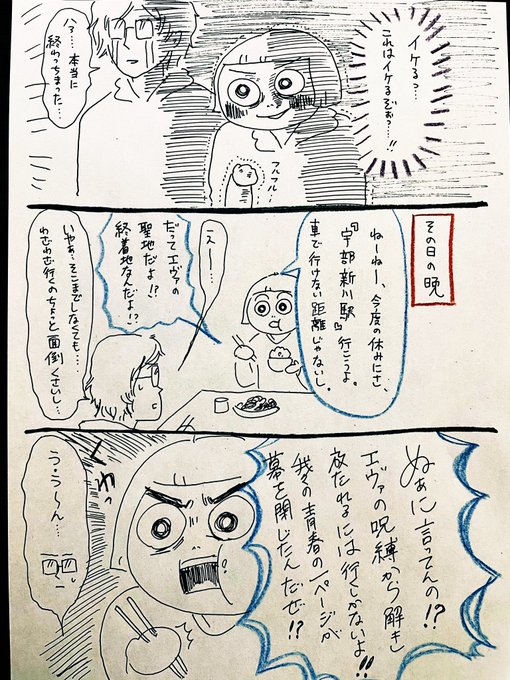 イケるっ…
これはイケるぞぉっ…!!
フルフル
ハァ…本当に
終わっちまった…
その日の晩
ねーねー、今度の休みにさ、
『宇部新川駅』行こうよ。
車で行けない距離じゃないし。
えー…
だってエヴァの
聖地だよ!?
終着地なんだよ!?
いやぁ…そこまでしなくても…
わざわざ行くのちょっと面倒くさいし…
ぬぁに言ってんの!?
エヴァの呪縛から解き
放たれるには行くしかないよ!!
我々の青春の一ページが
幕を閉じたんだぜ!?
くわっ
う・う〜ん…